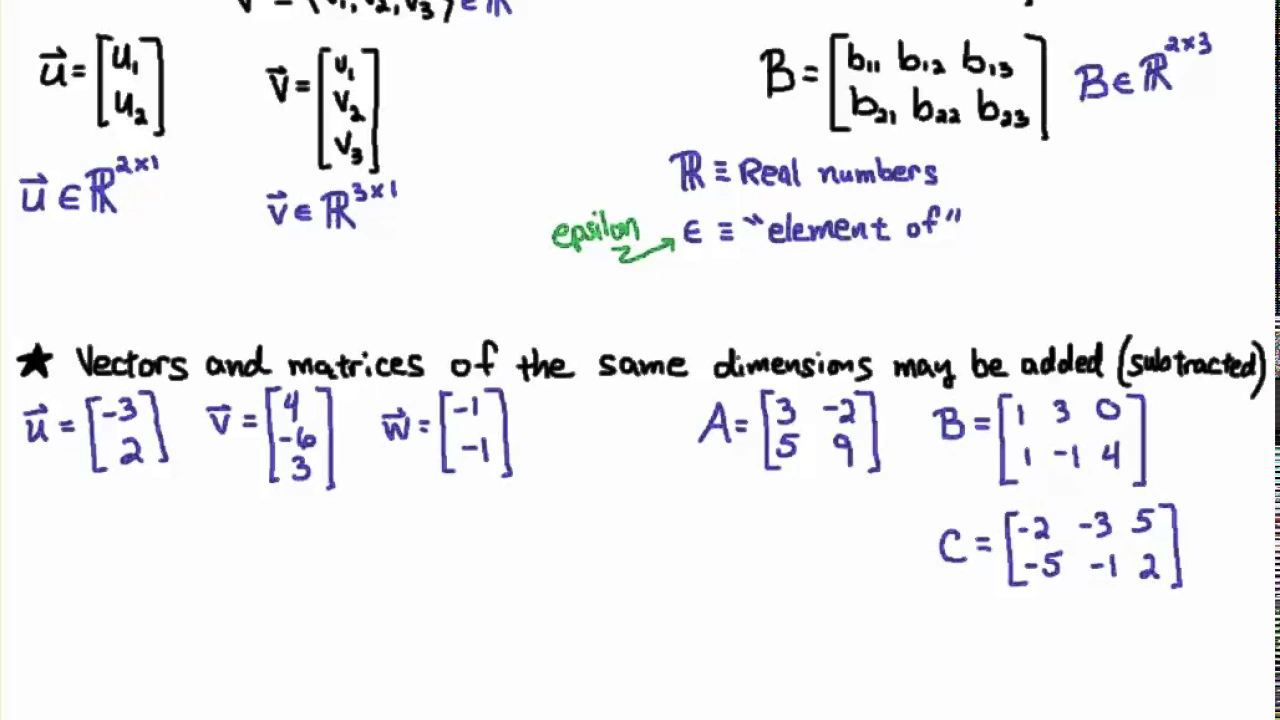 v = (v₁, v₂, v₃) ∈ ℝ
u⃗ = [u₁ u₂] v⃗ = [v₁ v₂ v₃] B = [b₁₁ b₁₂ b₁₃; b₂₁ b₂₂ b₂₃] B ∈ ℝ²ˣ³
u⃗ ∈ ℝ²ˣ¹ v⃗ ∈ ℝ³ˣ¹ ℝ ≡ Real numbers
epsilon ∈ ≡ "element of"
★ Vectors and matrices of the same dimensions may be added (subtracted)
u⃗ = [-3; 2] v⃗ = [4; -6; 3] w⃗ = [-1; -1] A = [3 -2; 5 9] B = [1 3 0; 1 -1 4]
C = [-2 -3 5; -5 -1 2]